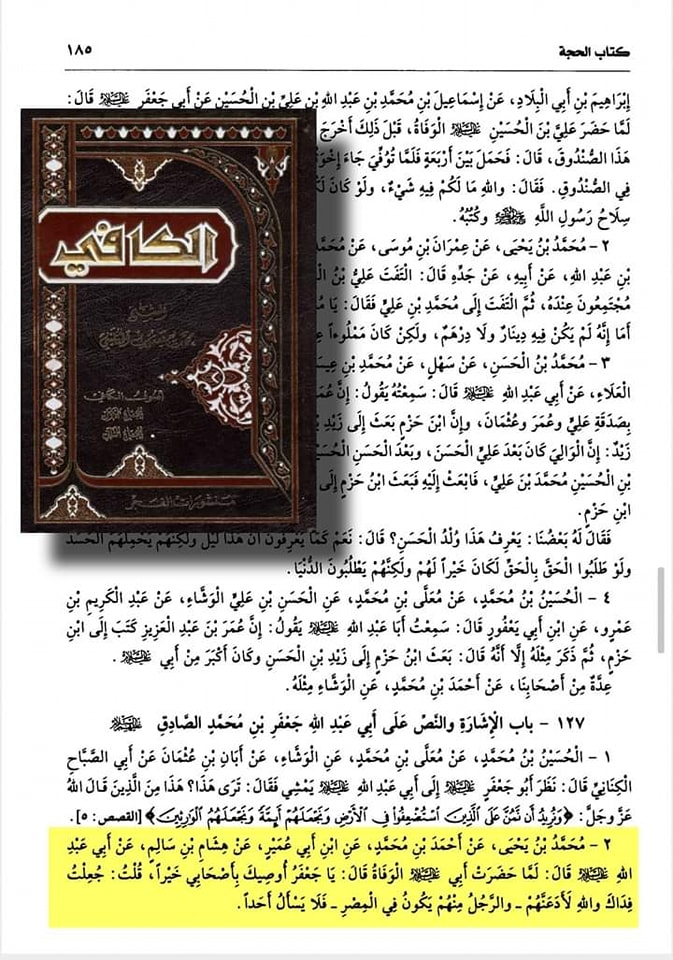 كتاب الحجة
١٨٥
إِبْرَاهِيمَ بْنِ أَبِي الْبِلَادِ، عَنْ إِسْمَاعِيلَ بْنِ مُحَمَّدِ بْنِ عَبْدِ اللهِ بْنِ عَلِيِّ بْنِ الْحُسَيْنِ عَنْ أَبِي جَعْفَرٍ عليه السلام قَالَ:
لَمَّا حَضَرَ عَلِيَّ بْنَ الْحُسَيْنِ عليه السلام الْوَفَاةُ، قَبْلَ ذَلِكَ أَخْرَجَ
هَذَا الصُّنْدُوقَ، قَالَ: فَحَمَلَ بَيْنَ أَرْبَعَةٍ فَلَمَّا تُوُفِّيَ جَاءَ
فِي الصُّنْدُوقِ. فَقَالَ: وَاللهِ مَا لَكُمْ فِيهِ شَيْءٌ، وَلَوْ كَانَ
سِلَاحُ رَسُولِ اللهِ صلى الله عليه وآله وسلم وَكُتُبُهُ.
٢ - مُحَمَّدُ بْنُ يَحْيَى، عَنْ عِمْرَانَ بْنِ مُوسَى، عَنْ
بْنِ عَبْدِ اللهِ، عَنْ أَبِيهِ، عَنْ جَدِّهِ قَالَ: الْتَفَتَ عَلِيُّ بْنُ
مُجْتَمِعُونَ عِنْدَهُ، ثُمَّ الْتَفَتَ إِلَى مُحَمَّدِ بْنِ عَلِيٍّ فَقَالَ: يَا
أَمَا إِنَّهُ لَمْ يَكُنْ فِيهِ دِينَارٌ وَلَا دِرْهَمٌ، وَلَكِنْ كَانَ مَمْلُوءاً
٣ - مُحَمَّدُ بْنُ الْحَسَنِ، عَنْ سَهْلٍ، عَنْ مُحَمَّدِ بْنِ
الْعَلَاءِ، عَنْ أَبِي عَبْدِ اللهِ عليه السلام قَالَ: سَمِعْتُهُ يَقُولُ: إِنَّ
بِصَدَقَةِ عَلِيٍّ وَعُمَرَ وَعُثْمَانَ، وَإِنَّ ابْنَ حَزْمٍ بَعَثَ إِلَى زَيْدِ
زَيْدٌ: إِنَّ الْوَالِيَ كَانَ بَعْدَ عَلِيٍّ الْحَسَنَ، وَبَعْدَ الْحَسَنِ
بْنِ الْحُسَيْنِ مُحَمَّدَ بْنَ عَلِيٍّ، فَابْعَثْ إِلَيْهِ فَبَعَثَ ابْنُ حَزْمٍ إِلَى
ابْنِ حَزْمٍ.
فَقَالَ لَهُ بَعْضُنَا: يَعْرِفُ هَذَا وُلْدُ الْحَسَنِ؟ قَالَ: نَعَمْ كَمَا يَعْرِفُونَ أَنَّ هَذَا لَيْلٌ وَلَكِنَّهُمْ يَحْمِلُهُمُ الْحَسَدُ
وَلَوْ طَلَبُوا الْحَقَّ بِالْحَقِّ لَكَانَ خَيْراً لَهُمْ وَلَكِنَّهُمْ يَطْلُبُونَ الدُّنْيَا.
٤ - الْحُسَيْنُ بْنُ مُحَمَّدٍ، عَنْ مُعَلَّى بْنِ مُحَمَّدٍ، عَنِ الْحَسَنِ بْنِ عَلِيٍّ الْوَشَّاءِ، عَنْ عَبْدِ الْكَرِيمِ بْنِ
عَمْرٍو، عَنِ ابْنِ أَبِي يَعْفُورٍ قَالَ: سَمِعْتُ أَبَا عَبْدِ اللهِ عليه السلام يَقُولُ: إِنَّ عُمَرَ بْنَ عَبْدِ الْعَزِيزِ كَتَبَ إِلَى ابْنِ
حَزْمٍ، ثُمَّ ذَكَرَ مِثْلَهُ إِلَّا أَنَّهُ قَالَ: بَعَثَ ابْنُ حَزْمٍ إِلَى زَيْدِ بْنِ الْحَسَنِ وَكَانَ أَكْبَرَ مِنْ أَبِي عليه السلام.
عِدَّةٌ مِنْ أَصْحَابِنَا، عَنْ أَحْمَدَ بْنِ مُحَمَّدٍ، عَنِ الْوَشَّاءِ مِثْلَهُ.
١٢٧ - باب الْإِشَارَةِ والنَّصِّ عَلَى أَبِي عَبْدِ اللهِ جَعْفَرِ بْنِ مُحَمَّدٍ الصَّادِقِ عليه السلام
١ - الْحُسَيْنُ بْنُ مُحَمَّدٍ، عَنْ مُعَلَّى بْنِ مُحَمَّدٍ، عَنِ الْوَشَّاءِ، عَنْ أَبَانِ بْنِ عُثْمَانَ عَنْ أَبِي الصَّبَّاحِ
الْكِنَانِيِّ قَالَ: نَظَرَ أَبُو جَعْفَرٍ عليه السلام إِلَى أَبِي عَبْدِ اللهِ عليه السلام يَمْشِي فَقَالَ: تَرَى هَذَا؟ هَذَا مِنَ الَّذِينَ قَالَ اللهُ
عَزَّ وَجَلَّ: ﴿وَنُرِيدُ أَن نَّمُنَّ عَلَى الَّذِينَ اسْتُضْعِفُوا فِي الْأَرْضِ وَنَجْعَلَهُمْ أَئِمَّةً وَنَجْعَلَهُمُ الْوَارِثِينَ﴾ [القصص: ٥].
٢ - مُحَمَّدُ بْنُ يَحْيَى، عَنْ أَحْمَدَ بْنِ مُحَمَّدٍ، عَنِ ابْنِ أَبِي عُمَيْرٍ، عَنْ هِشَامِ بْنِ سَالِمٍ، عَنْ أَبِي عَبْدِ
اللهِ عليه السلام قَالَ: لَمَّا حَضَرَتْ أَبِي عليه السلام الْوَفَاةُ قَالَ: يَا جَعْفَرُ أُوصِيكَ بِأَصْحَابِي خَيْراً، قُلْتُ: جُعِلْتُ
فِدَاكَ وَاللهِ لَأَدَعَنَّهُمْ - والرَّجُلُ مِنْهُمْ يَكُونُ فِي الْمِصْرِ - فَلَا يَسْأَلُ أَحَداً.
الكافي
منشورات الفجر